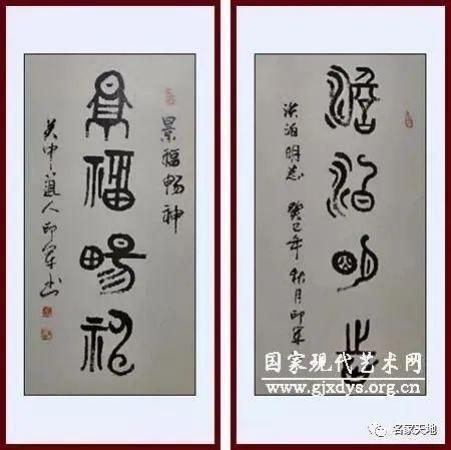 景福畅神
景福畅神
澹泊明志
淡泊明志 癸巳年 秋月 印军
国家现代艺术网
www.gjxdys.org.cn
名家天地